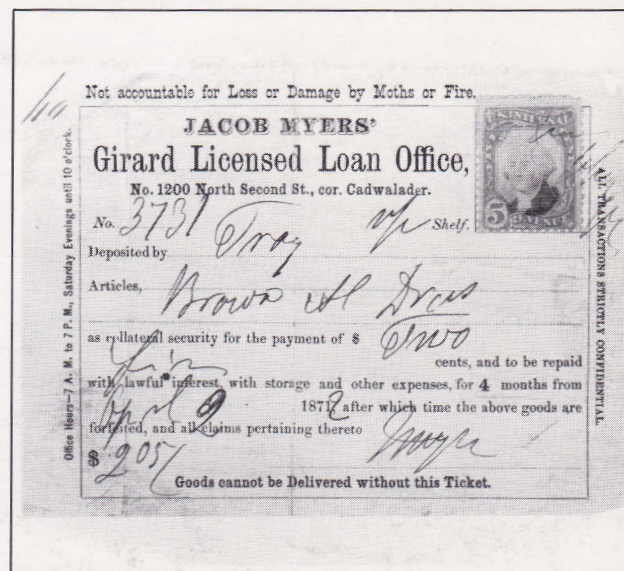 Not accountable for Loss or Damage by Moths or Fire.
JACOB MYERS'
Girard Licensed Loan Office,
No. 1200 North Second St., cor. Cadwalader.
No. 3731 Shelf.
Deposited by Troy
Articles, Brown Al Dress
as collateral security for the payment of $ Two
cents, and to be repaid
with lawful interest, with storage and other expenses, for 4 months from
April 2 1872 after which time the above goods are
forfeited, and all claims pertaining thereto
$ 2.05
Goods cannot be Delivered without this Ticket.
Office Hours—7 A. M. to 7 P. M., Saturday Evenings until 10 o'clock.
ALL TRANSACTIONS STRICTLY CONFIDENTIAL.
5
REVENUE